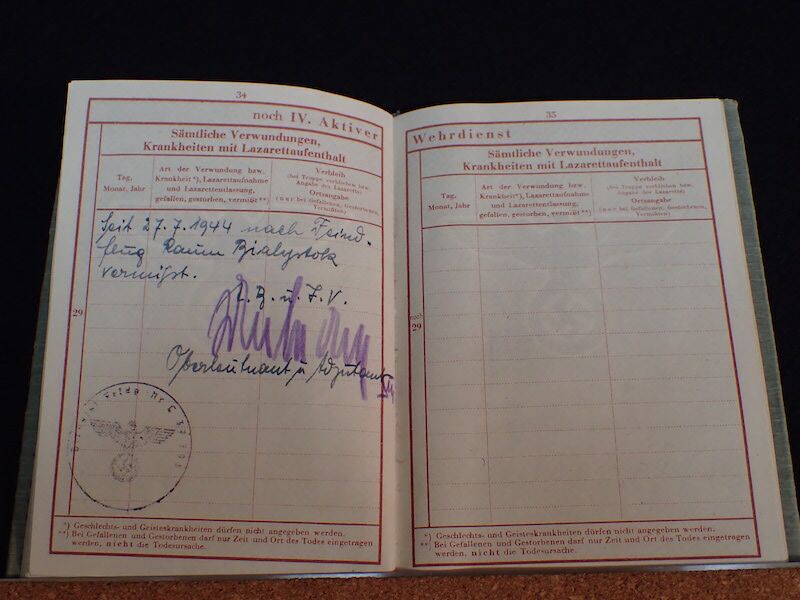 34
noch IV. Aktiver
Sämtliche Verwundungen,
Krankheiten mit Lazarettaufenthalt
Tag,
Monat, Jahr
Art der Verwundung bzw.
Krankheit*), Lazarettaufnahme
und Lazarettentlassung,
gefallen, gestorben, vermißt**)
Verbleib
(bei Truppe verblieben bzw.
Angabe des Lazaretts)
Ortsangabe
(nur bei Gefallenen, Gestorbenen,
Vermißten)
Seit 27.7.1944 nach Feind-
flug Raum Bialystok
vermißt.
29
Oberleutnant u Adjutant
*) Geschlechts- und Geisteskrankheiten dürfen nicht angegeben werden.
**) Bei Gefallenen und Gestorbenen darf nur Zeit und Ort des Todes eingetragen
werden, nicht die Todesursache.
35
Wehrdienst
Sämtliche Verwundungen,
Krankheiten mit Lazarettaufenthalt
Tag,
Monat, Jahr
Art der Verwundung bzw.
Krankheit*), Lazarettaufnahme
und Lazarettentlassung,
gefallen, gestorben, vermißt**)
Verbleib
(bei Truppe verblieben bzw.
Angabe des Lazaretts)
Ortsangabe
(nur bei Gefallenen, Gestorbenen,
Vermißten)
noch
29
*) Geschlechts- und Geisteskrankheiten dürfen nicht angegeben werden.
**) Bei Gefallenen und Gestorbenen darf nur Zeit und Ort des Todes eingetragen
werden, nicht die Todesursache.